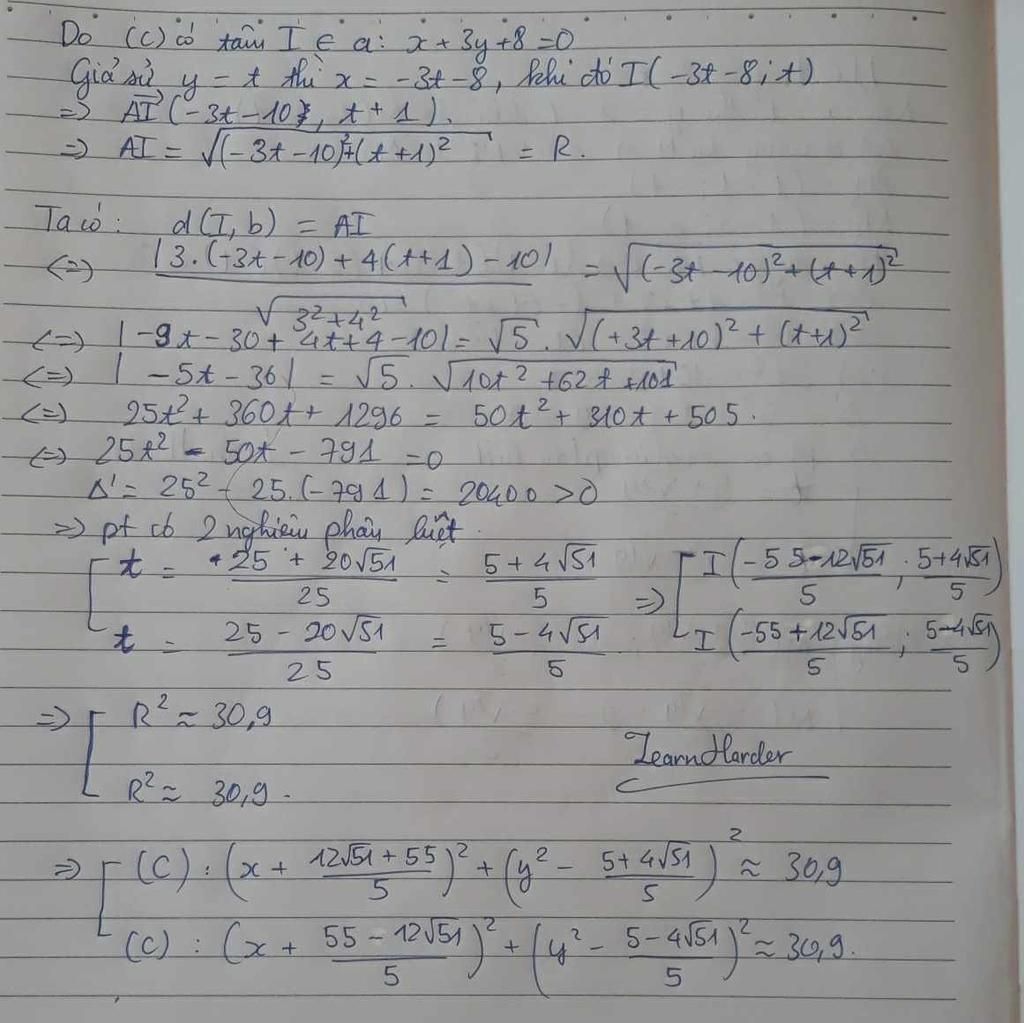 Do (C) có tâm I ∈ a: x + 3y + 8 = 0
Giả sử y = t thì x = -3t - 8, khi đó I(-3t - 8; t)
=> AI(-3t - 10; t + 1).
=> AI = √((-3t - 10)² + (t + 1)²) = R.
Ta có: d(I, b) = AI
<=> |3.(-3t - 10) + 4(t + 1) - 10| / √(3² + 4²) = √((-3t - 10)² + (t + 1)²)
<=> |-9t - 30 + 4t + 4 - 10| = √5 . √((+3t + 10)² + (t + 1)²)
<=> |-5t - 36| = √5 . √(10t² + 62t + 101)
<=> 25t² + 360t + 1296 = 50t² + 310t + 505.
<=> 25t² - 50t - 791 = 0
Δ' = 25² - 25.(-791) = 20400 > 0
=> pt có 2 nghiệm phân biệt.
[ t = (25 + 20√51)/25 = (5 + 4√51)/5 => [ I((-55 - 12√51)/5 ; (5 + 4√51)/5)
t = (25 - 20√51)/25 = (5 - 4√51)/5 I((-55 + 12√51)/5 ; (5 - 4√51)/5)
=> [ R² ≈ 30,9
LearnHarder
R² ≈ 30,9.
=> [ (C) : (x + (12√51 + 55)/5)² + (y² - (5 + 4√51)/5)² ≈ 30,9
(C) : (x + (55 - 12√51)/5)² + (y² - (5 - 4√51)/5)² ≈ 30,9.